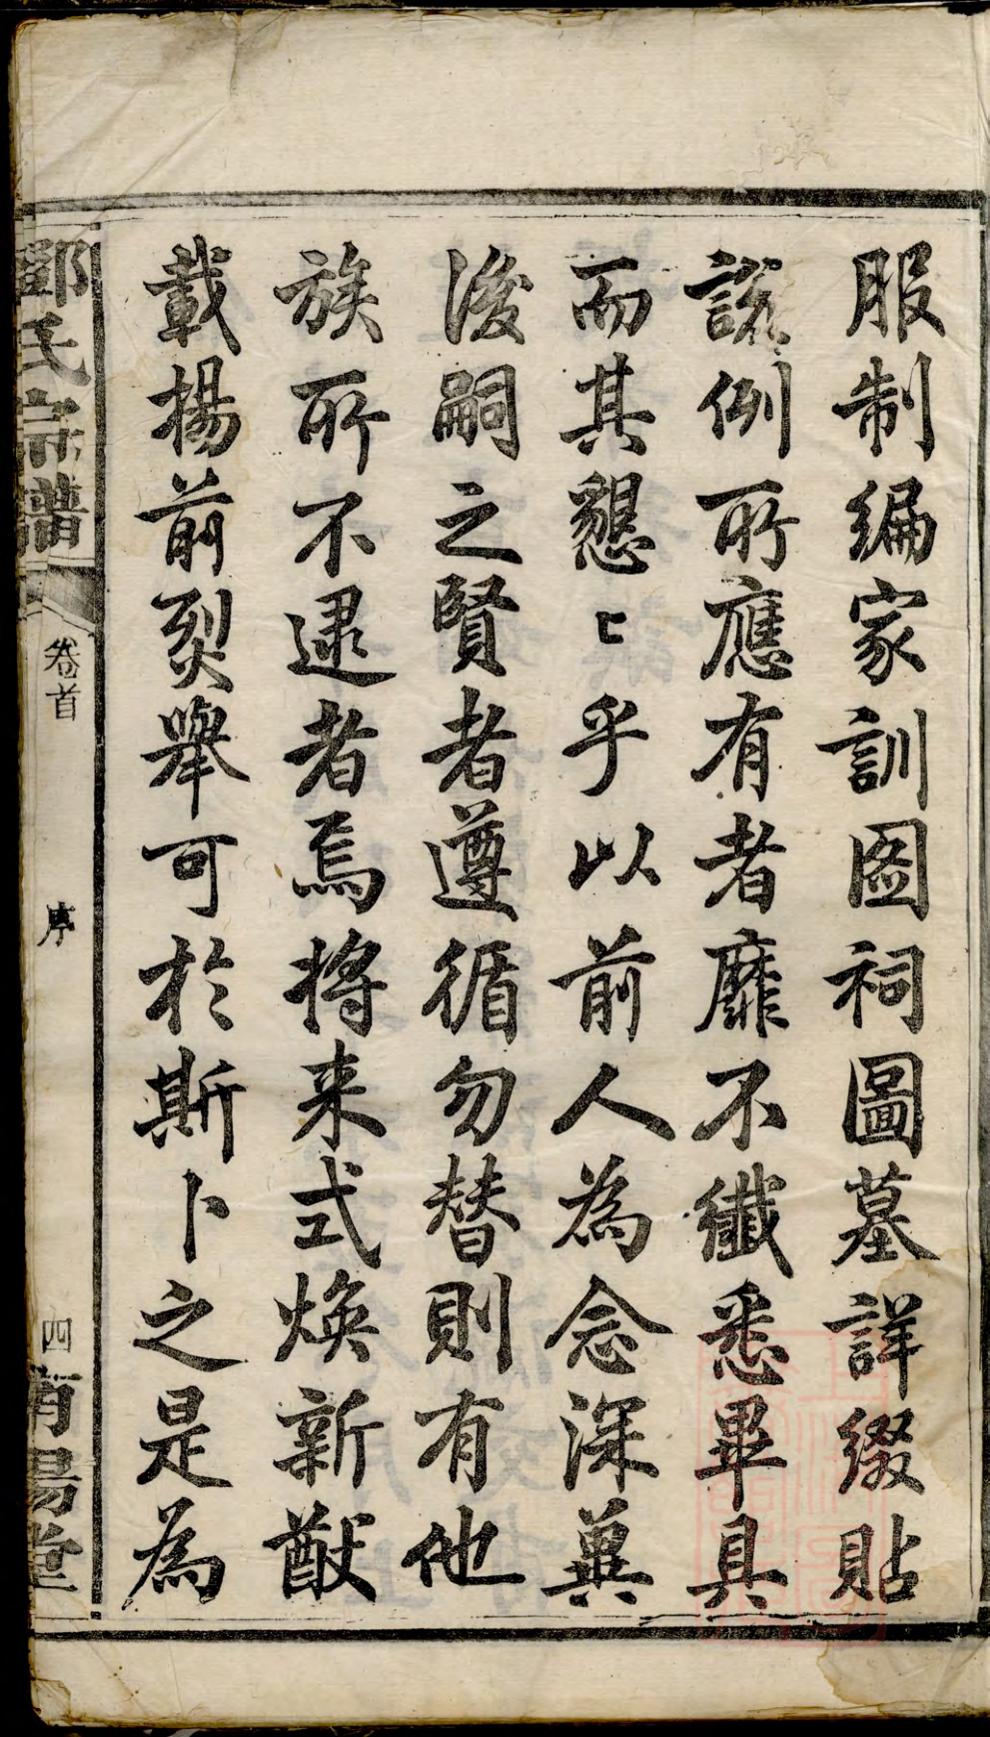 服制編家訓图祠圖墓詳綴貼
該例所應有者靡不纖悉畢具
而其懇〻乎以前人為念深冀
後嗣之賢者遵循勿替則有他
族所不逮者焉將来式煥新猷
載揚前烈舉可於斯卜之是為
鄧氏宗譜
卷首
序
四
南陽堂